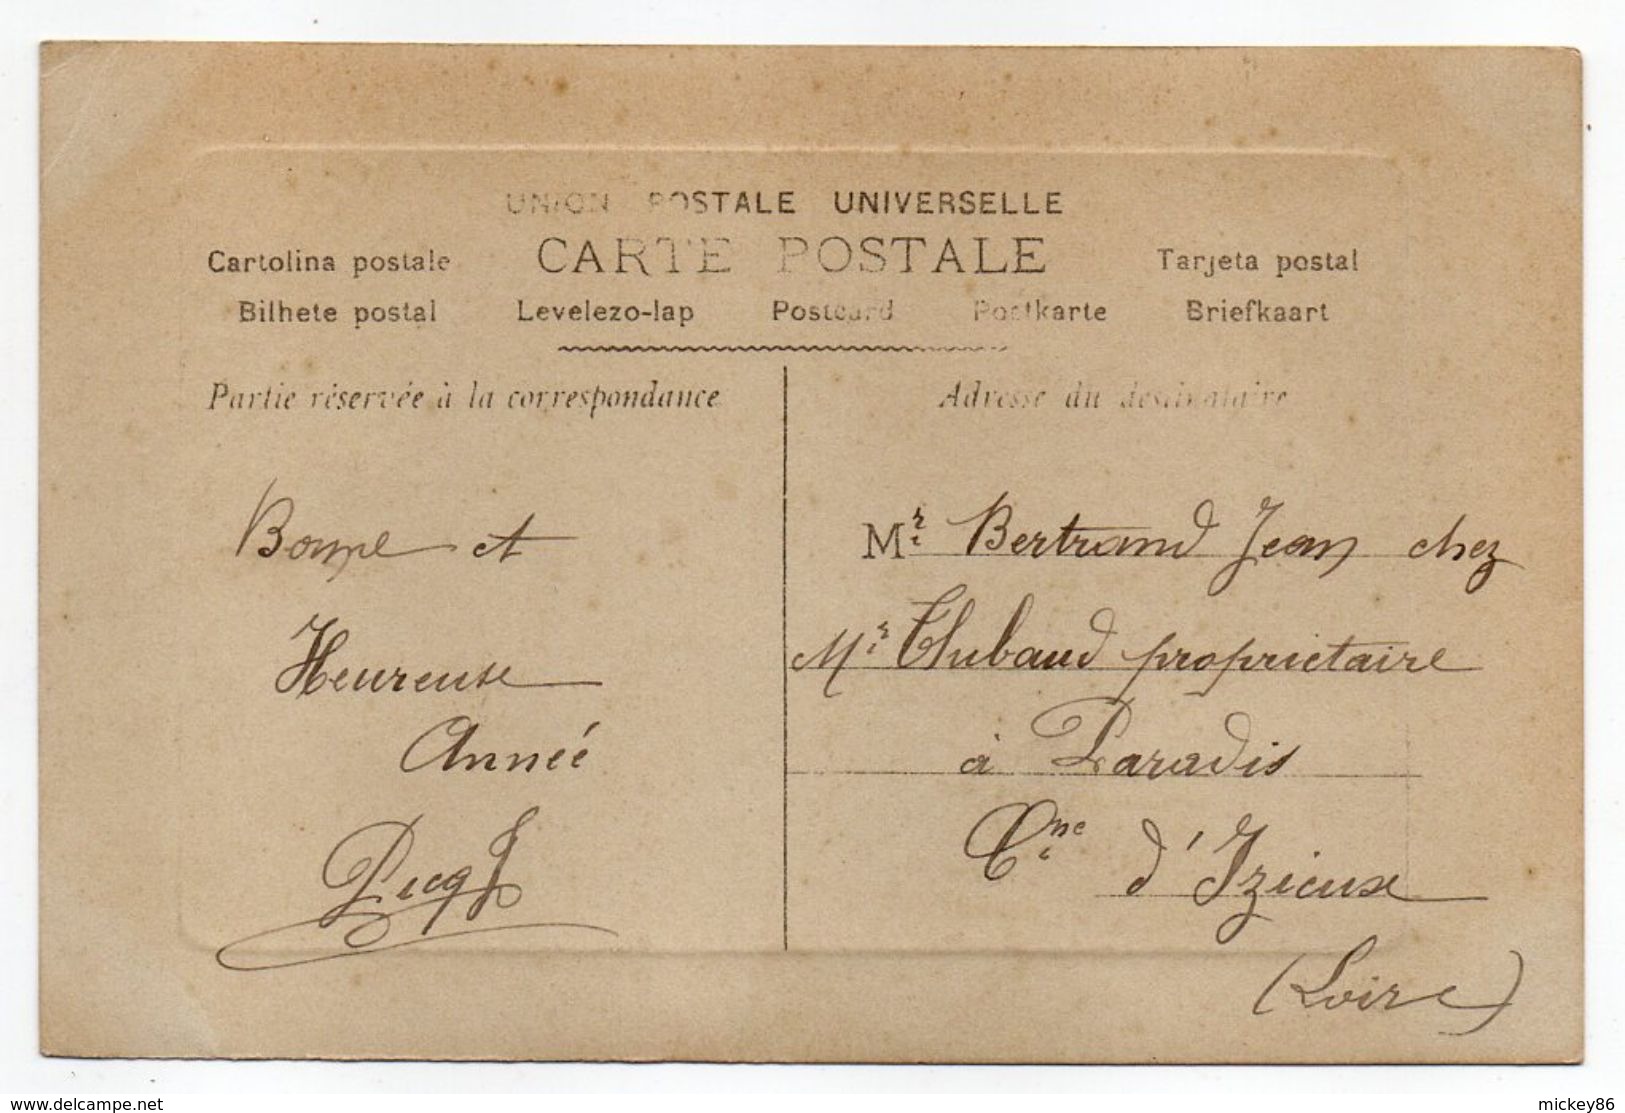 UNION POSTALE UNIVERSELLE
CARTE POSTALE
Cartolina postale
Tarjeta postal
Bilhete postal Levelezo-lap Postcard Postkarte Briefkaart
Partie réservée à la correspondance
Bonne et
Heureuse
Année
Adresse du destinataire
Mr Bertrand Jean chez
Mr Thubaud propriétaire
à Paradis
Cne d'Izieux
(Loire)
www.delcampe.net
mickey86